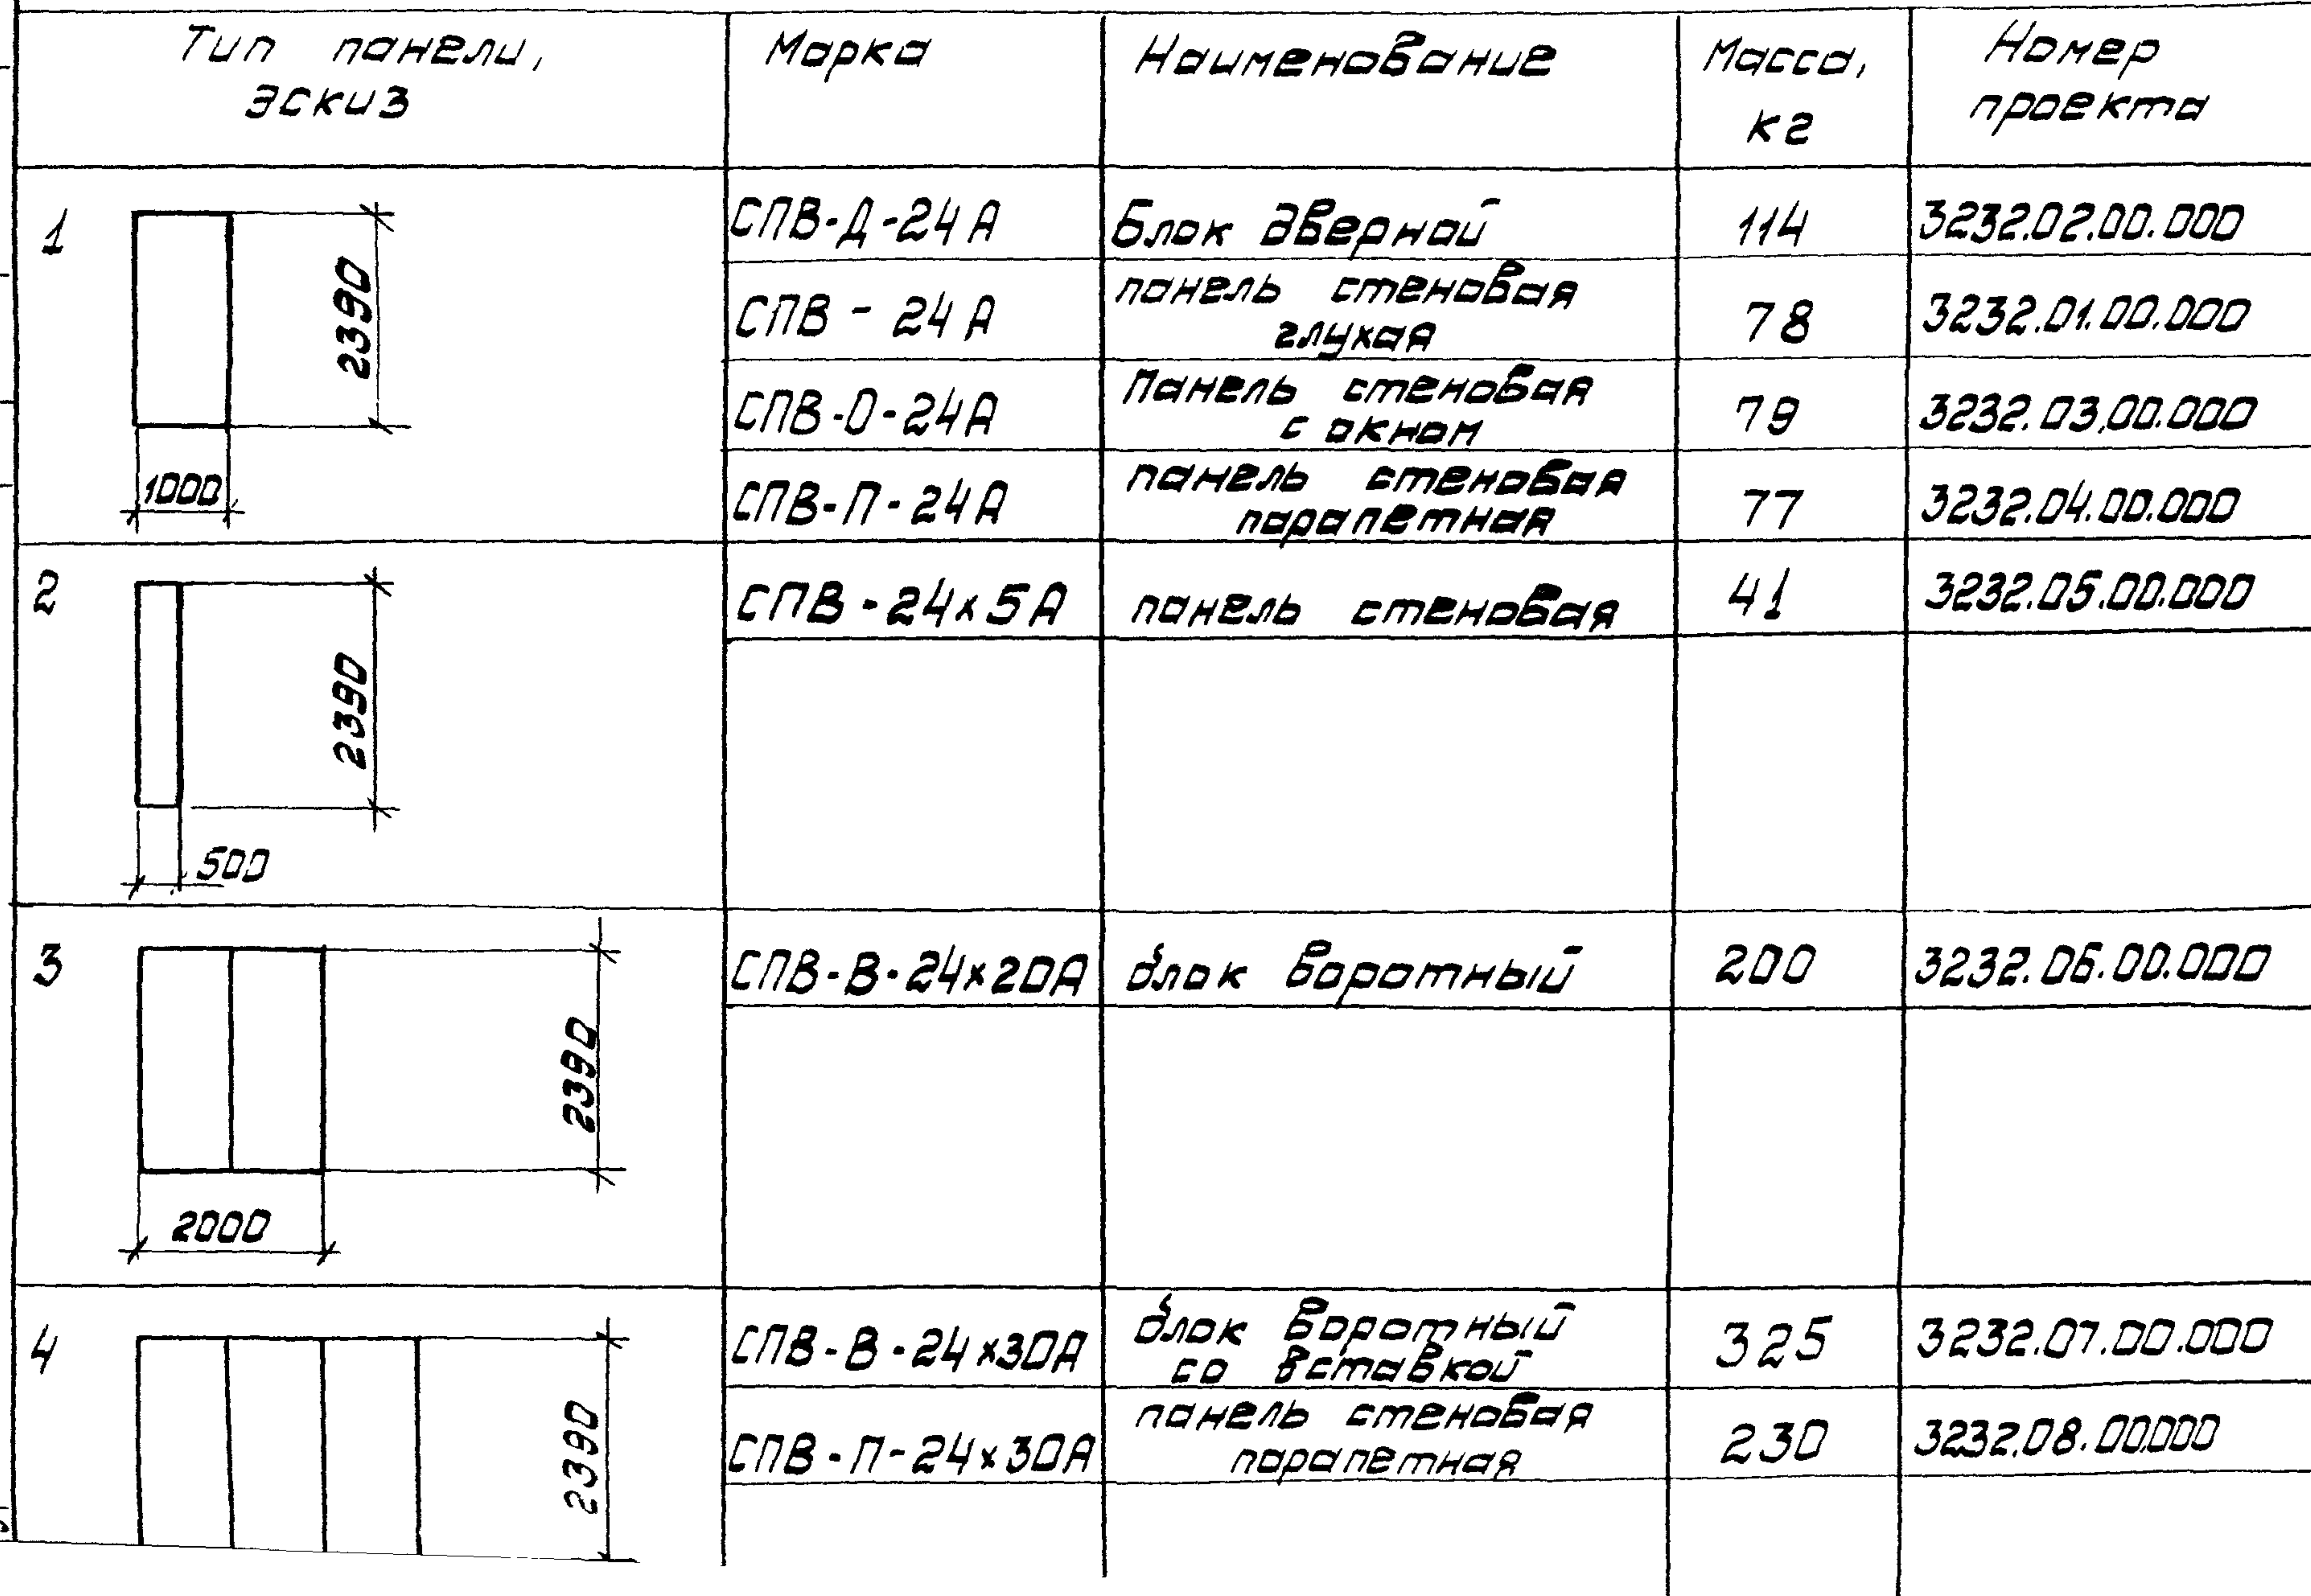 Тип панели,
эскиз
Марка
Наименование
Масса,
кг
Номер
проекта
1
2390
1000
СПВ-Д-24А
Блок дверной
114
3232.02.00.000
СПВ-24А
панель стеновая
глухая
78
3232.01.00.000
СПВ-О-24А
Панель стеновая
с окном
79
3232.03.00.000
СПВ-П-24А
панель стеновая
парапетная
77
3232.04.00.000
2
2390
500
СПВ-24х5А
панель стеновая
41
3232.05.00.000
3
2390
2000
СПВ-В-24х20А
блок воротный
200
3232.06.00.000
4
2390
СПВ-В-24х30А
блок воротный
со вставкой
325
3232.07.00.000
СПВ-П-24х30А
панель стеновая
парапетная
230
3232.08.00.000